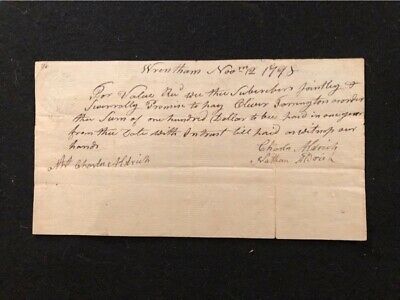 Wrentham Novm 12 1798
For Value Recd wee the Subscribers jointly &
Severally Promise to pay Oliver Farrington or order
the Sum of one hundred Dollar to bee paid in one year
from this Date with Intrust till paid as witnes our
hands
Charls Aldrich
Att Charls Aldrich
Nathan Aldrich